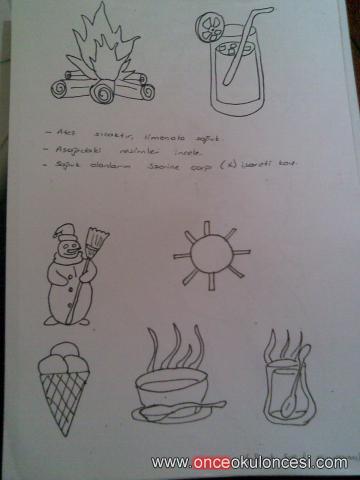 - Ateş sıcaktır, limonata soğuk.
- Aşağıdaki resimleri incele.
- Soğuk olanların üzerine çarpı (x) işareti koy.
www.onceokuloncesi.com